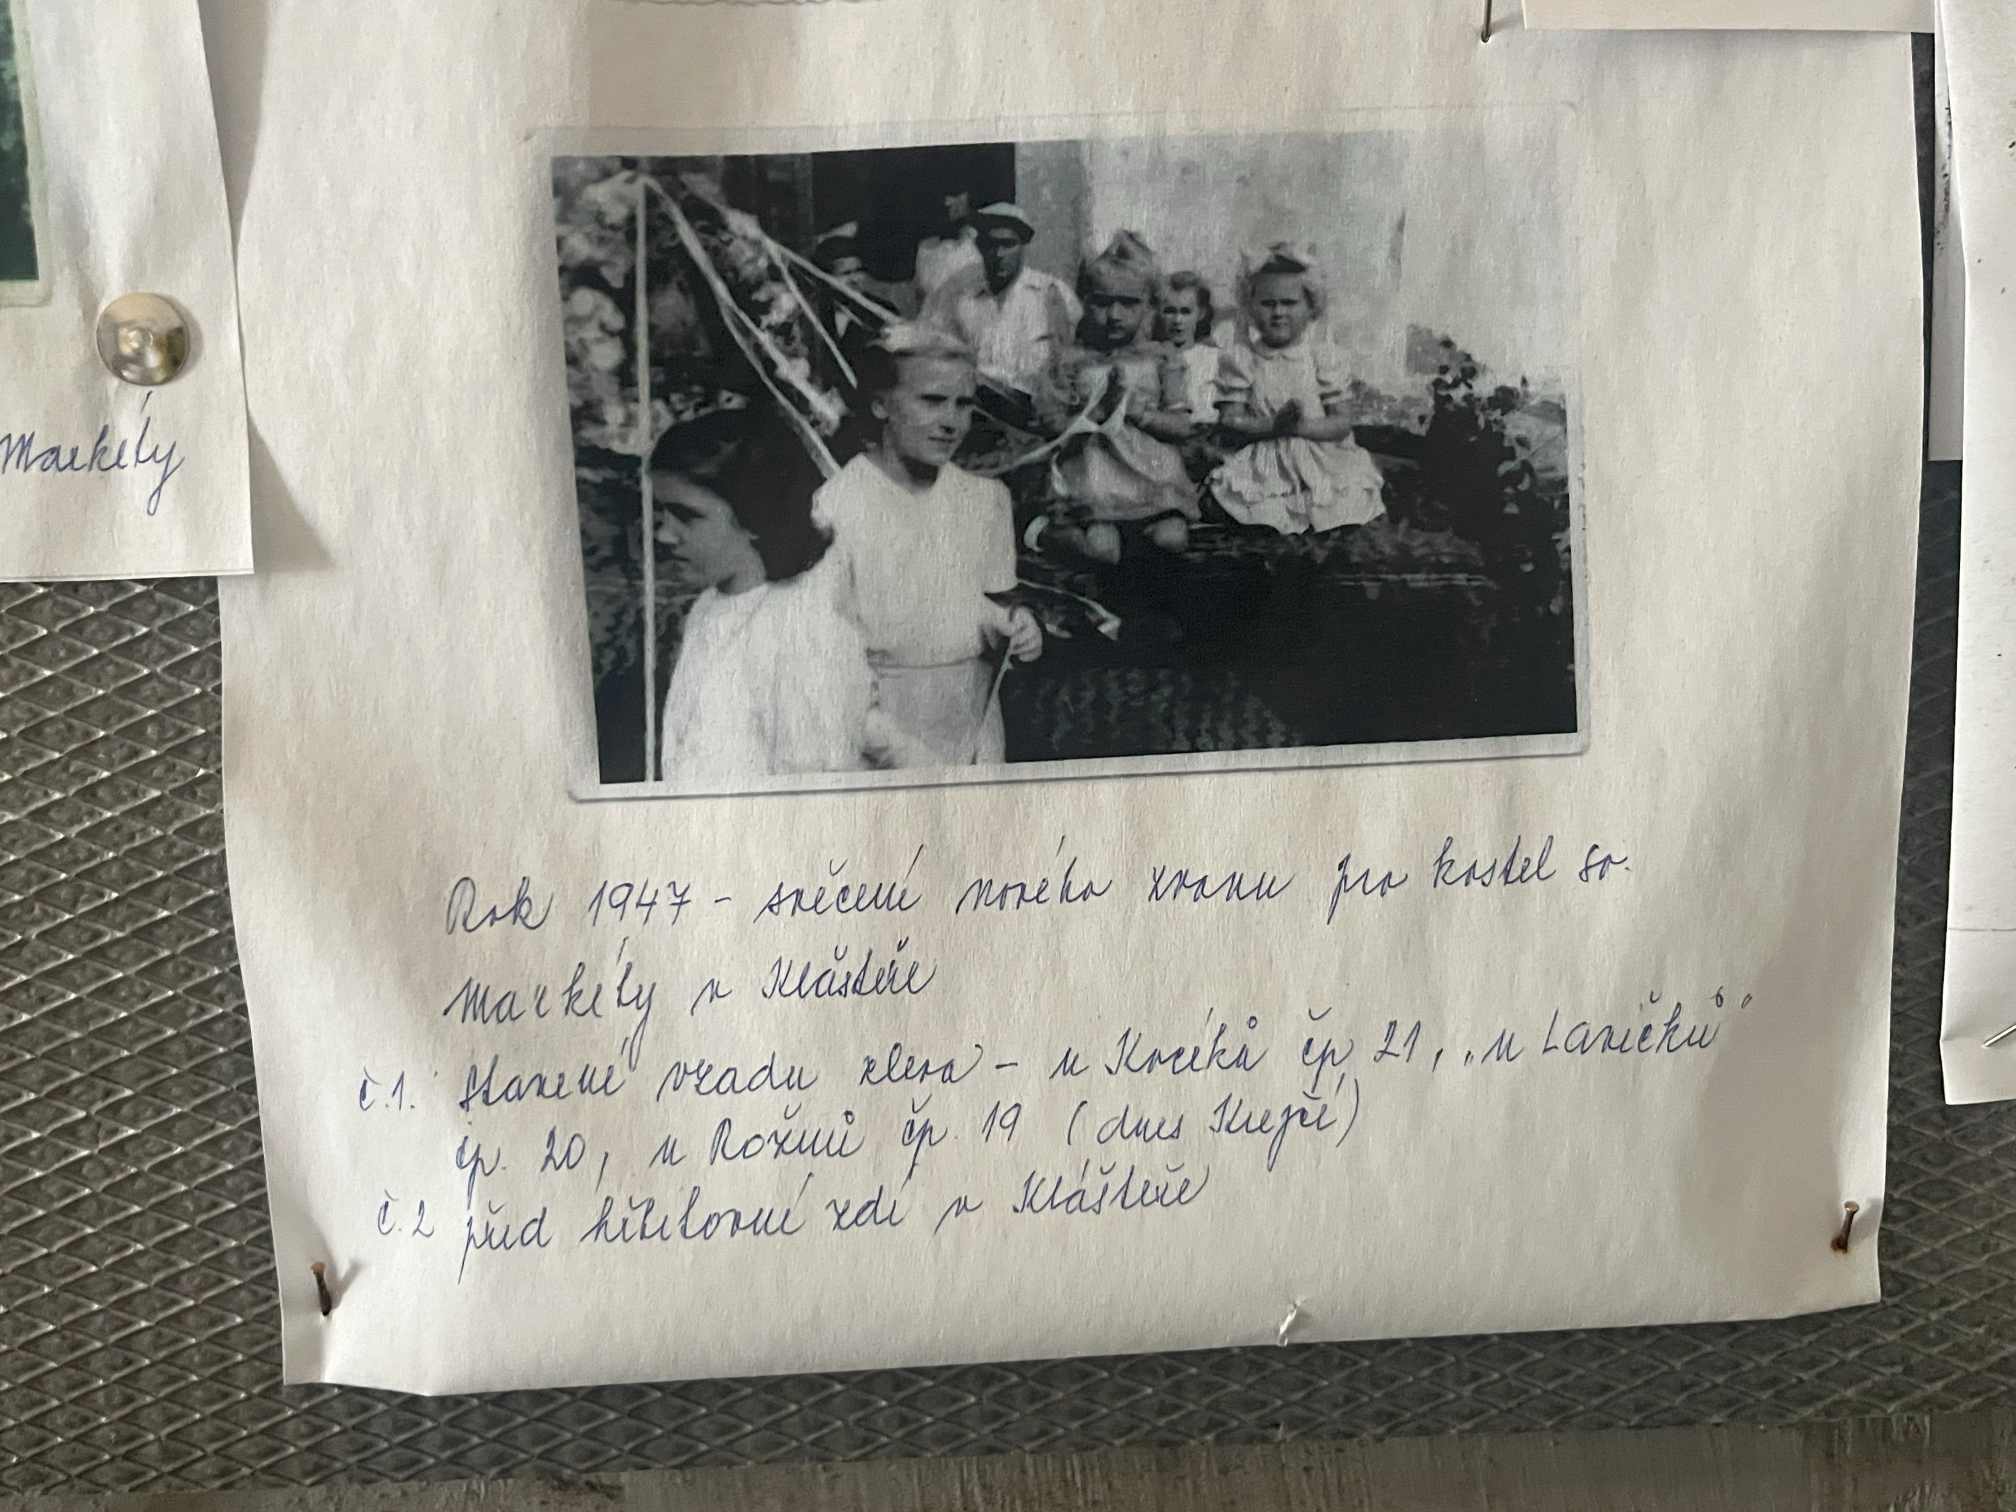 Markéty
Rok 1947 - svěcení nového zvonu pro kostel sv.
Markéty v Klášteře
č.1. Stavení vzadu zleva - u Kvčíků čp 21, „u Lavičků"
čp. 20, u Rožnů čp. 19 (dnes Krejčí)
č.2 před hřbitovní zdí v Klášteře